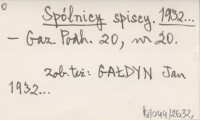 Spólnicy spiscy. 1932...
- Gaz. Podh. 20, nr 20.
zob. też: GAŁDYN Jan
1932...